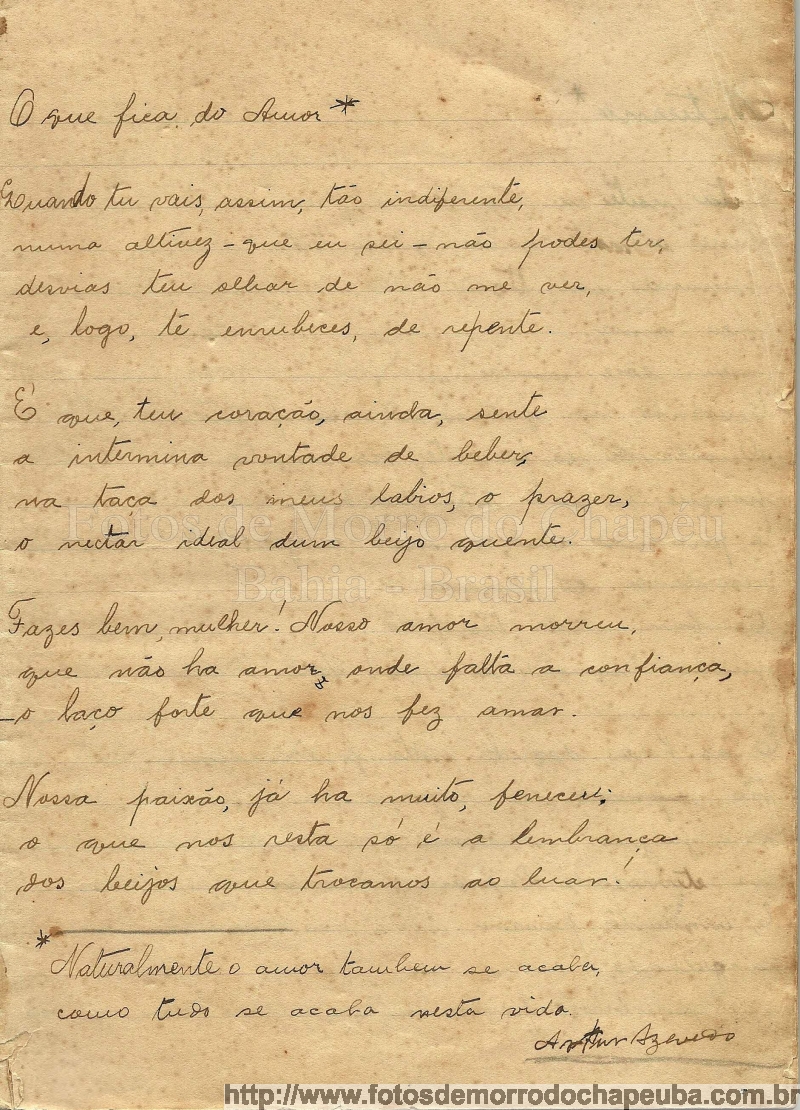 O que fica do Amor *
Quando tu vais, assim, tão indiferente,
numa altivez - que eu sei - não podes ter,
desvias teu olhar de não me ver,
e, logo, te enrubeces, de repente.
É que, teu coração, ainda, sente
a intermina vontade de beber,
na taça dos meus labios, o prazer,
o nectar ideal dum beijo quente.
Fazes bem, mulher! Nosso amor morreu,
que não ha amor, onde falta a confiança,
- o laço forte que nos fez amar.
Nossa paixão, já ha muito, feneceu;
o que nos resta só é a lembrança
dos beijos que trocamos ao luar!
* Naturalmente o amor tambem se acaba,
como tudo se acaba nesta vida.
Artur Azevedo
Fotos de Morro do Chapéu
Bahia - Brasil
http://www.fotosdemorrodochapeuba.com.br